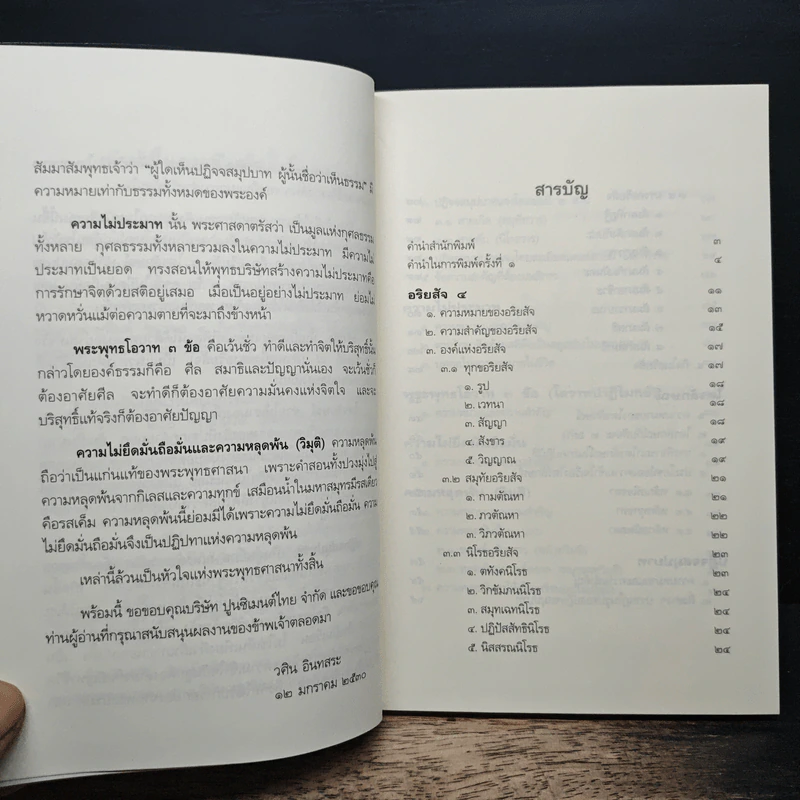 สัมมาสัมพุทธเจ้าว่า “ผู้ใดเห็นปฏิจจสมุปบาท ผู้นั้นชื่อว่าเห็นธรรม” มี
ความหมายเท่ากับธรรมทั้งหมดของพระองค์
ความไม่ประมาท นั้น พระศาสดาตรัสว่า เป็นมูลแห่งกุศลธรรม
ทั้งหลาย กุศลธรรมทั้งหลายรวมลงในความไม่ประมาท มีความไม่
ประมาทเป็นยอด ทรงสอนให้พุทธบริษัทสร้างความไม่ประมาทคือ
การรักษาจิตด้วยสติอยู่เสมอ เมื่อเป็นอยู่อย่างไม่ประมาท ย่อมไม่
หวาดหวั่นแม้ต่อความตายที่จะมาถึงข้างหน้า
พระพุทธโอวาท ๓ ข้อ คือเว้นชั่ว ทำดีและทำจิตให้บริสุทธิ์นั้น
กล่าวโดยองค์ธรรมก็คือ ศีล สมาธิและปัญญานั่นเอง จะเว้นชั่วก็
ต้องอาศัยศีล จะทำดีก็ต้องอาศัยความมั่นคงแห่งจิตใจ และจะ
บริสุทธิ์แท้จริงก็ต้องอาศัยปัญญา
ความไม่ยึดมั่นถือมั่นและความหลุดพ้น (วิมุติ) ความหลุดพ้น
ถือว่าเป็นแก่นแท้ของพระพุทธศาสนา เพราะคำสอนทั้งปวงมุ่งไปสู่
ความหลุดพ้นจากกิเลสและความทุกข์ เสมือนน้ำในมหาสมุทรมีรสเดียว
คือรสเค็ม ความหลุดพ้นนี้ย่อมมีได้เพราะความไม่ยึดมั่นถือมั่น ความ
ไม่ยึดมั่นถือมั่นจึงเป็นปฏิปทาแห่งความหลุดพ้น
เหล่านี้ล้วนเป็นหัวใจแห่งพระพุทธศาสนาทั้งสิ้น
พร้อมนี้ ขอขอบคุณบริษัท ปูนซิเมนต์ไทย จำกัด และขอขอบคุณ
ท่านผู้อ่านที่กรุณาสนับสนุนผลงานของข้าพเจ้าตลอดมา
วศิน อินทสระ
๑๒ มกราคม ๒๕๓๐
สารบัญ
คำนำสำนักพิมพ์ ๓
คำนำในการพิมพ์ครั้งที่ ๑ ๔
อริยสัจ ๔ ๑๑
๑. ความหมายของอริยสัจ ๑๓
๒. ความสำคัญของอริยสัจ ๑๕
๓. องค์แห่งอริยสัจ ๑๗
๓.๑ ทุกขอริยสัจ ๑๗
๑. รูป ๑๘
๒. เวทนา ๑๘
๓. สัญญา ๑๘
๔. สังขาร ๑๙
๕. วิญญาณ ๑๙
๓.๒ สมุทัยอริยสัจ ๒๑
๑. กามตัณหา ๒๑
๒. ภวตัณหา ๒๒
๓. วิภวตัณหา ๒๒
๓.๓ นิโรธอริยสัจ ๒๓
๑. ตทังคนิโรธ ๒๓
๒. วิกขัมภนนิโรธ ๒๔
๓. สมุทเฉทนิโรธ ๒๔
๔. ปฏิปัสสัทธินิโรธ ๒๔
๕. นิสสรณนิโรธ ๒๔